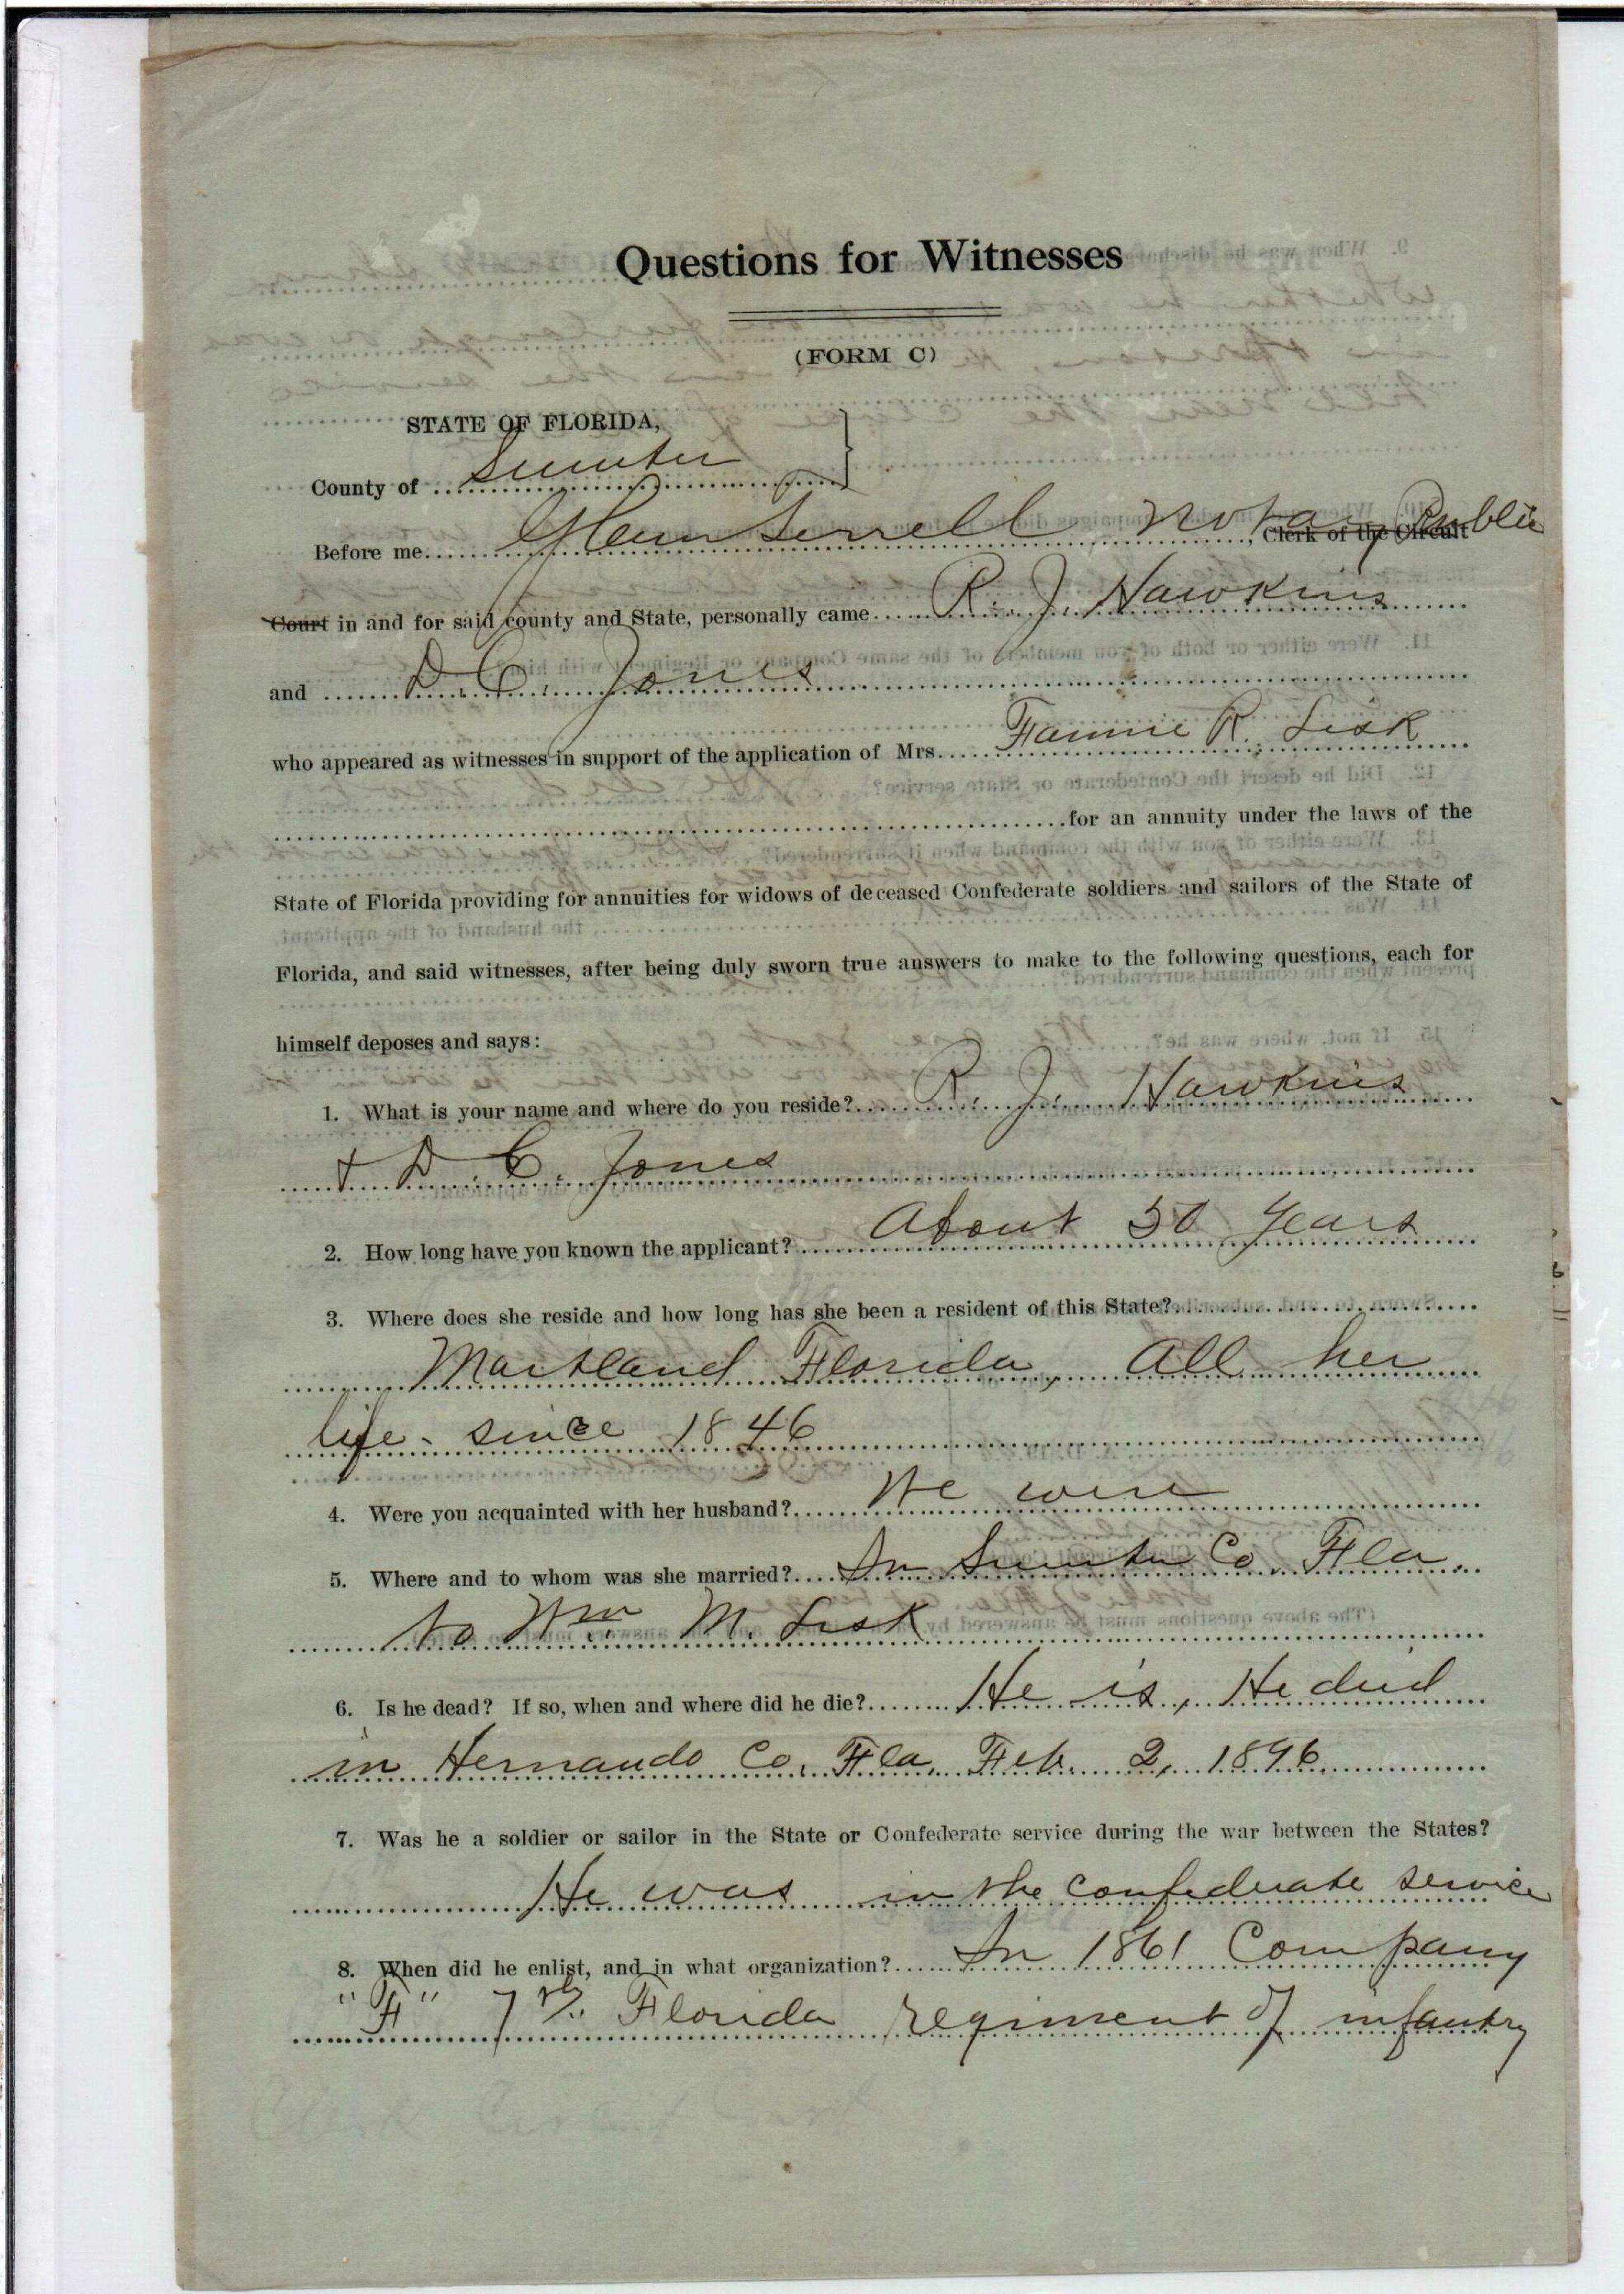 Questions for Witnesses
(FORM C)
STATE OF FLORIDA,
County of Sumter
Before me Glenn Terrell Notary Public, Clerk of the Circuit
Court in and for said county and State, personally came R. J. Hawkins
and D. C. Jones
who appeared as witnesses in support of the application of Mrs. Fannie R. Lisk
for an annuity under the laws of the
State of Florida providing for annuities for widows of deceased Confederate soldiers and sailors of the State of
Florida, and said witnesses, after being duly sworn true answers to make to the following questions, each for
himself deposes and says:
1. What is your name and where do you reside? R. J. Hawkins
+ D. C. Jones
2. How long have you known the applicant? About 50 years
3. Where does she reside and how long has she been a resident of this State?
Maitland Florida, All her
life - since 1846
4. Were you acquainted with her husband? We were
5. Where and to whom was she married? In Sumter Co, Fla.
to Wm M. Lisk
6. Is he dead? If so, when and where did he die? He is, He died
in Hernando Co. Fla. Feb. 2, 1896
7. Was he a soldier or sailor in the State or Confederate service during the war between the States?
He was in the confederate service
8. When did he enlist, and in what organization? In 1861 Company
"F" 7th Florida regiment of infantry